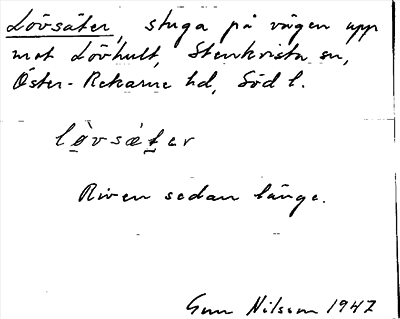 Lövsäter, stuga på vägen upp
mot Lövhult, Stenkvista sn,
Öster-Rekarne hd, Söd l.
lø̀vsæ̀tər
Riven sedan länge.
Gun Nilsson 1947